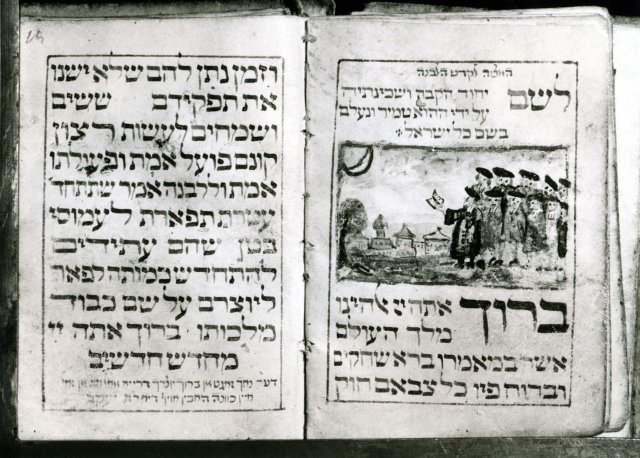 לקדש הלבנה
לשם יחוד הקבה ושכינתיה
על ידי ההוא טמיר ונעלם
בשם כל ישראל
ברוך אתה יי אלהינו
מלך העולם
אשר במאמרו ברא שחקים
וברוח פיו כל צבאם חוק
וזמן נתן להם שלא ישנו
את תפקידם ששים
ושמחים לעשות רצון
קונם פועל אמת ופעולתו
אמת וללבנה אמר שתתחד
עטרת תפארת לעמוסי
בטן שהם עתידים
להתחדש כמותה לפאר
ליוצרם על שם כבוד
מלכותו ברוך אתה יי
מחדש חדשים